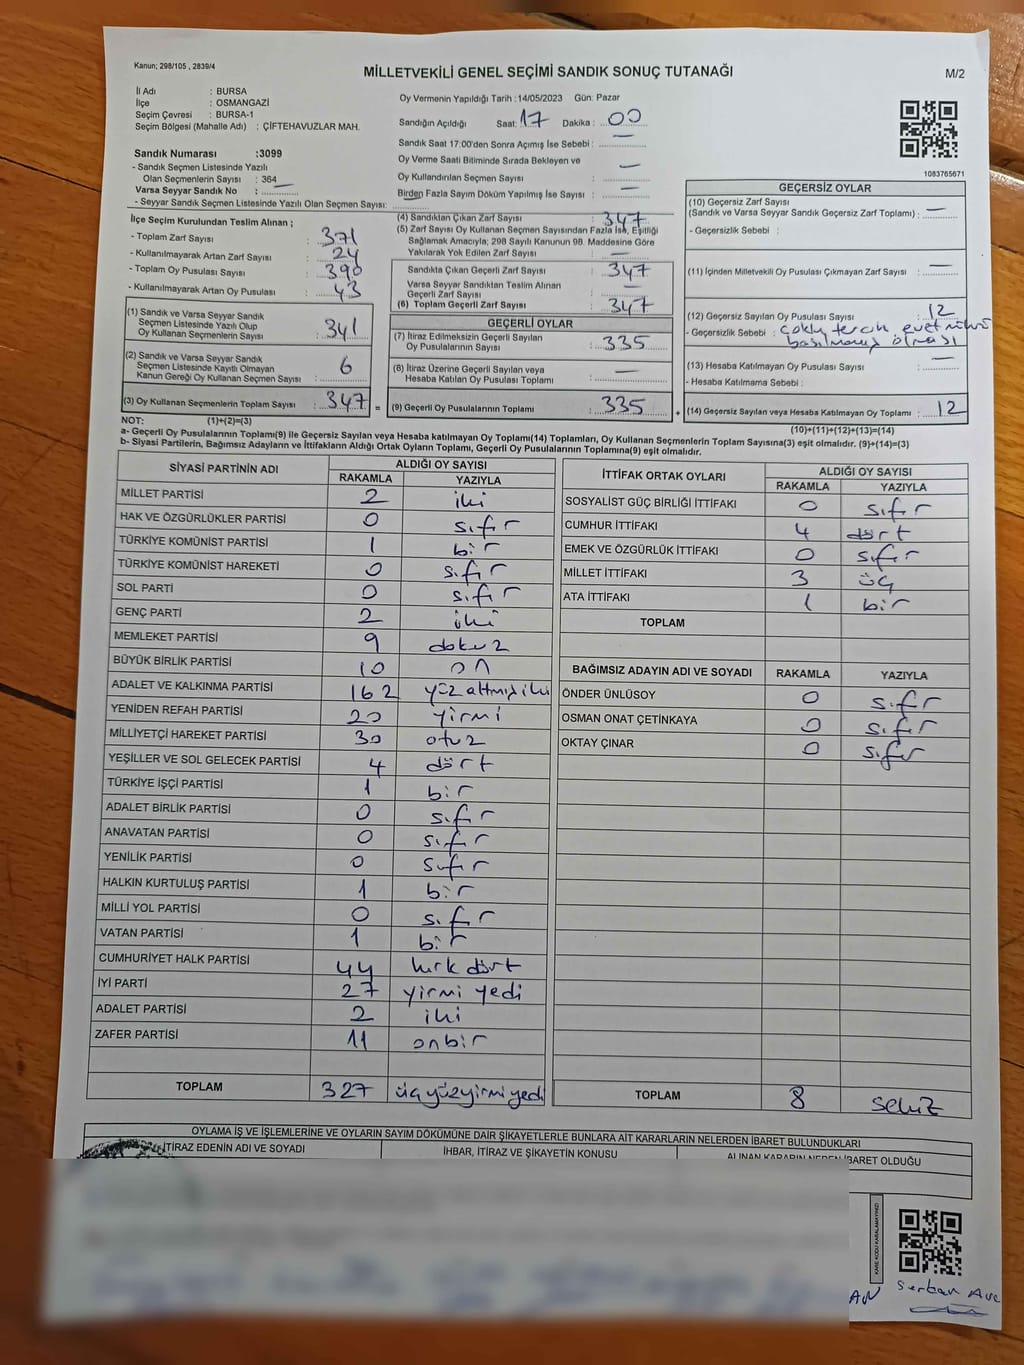 Kanun; 298/105 , 2839/4
MİLLETVEKİLİ GENEL SEÇİMİ SANDIK SONUÇ TUTANAĞI
M/2
İl Adı : BURSA
İlçe : OSMANGAZİ
Seçim Çevresi : BURSA-1
Seçim Bölgesi (Mahalle Adı) : ÇİFTEHAVUZLAR MAH.
Sandık Numarası :3099
- Sandık Seçmen Listesinde Yazılı
Olan Seçmenlerin Sayısı : 364
Varsa Seyyar Sandık No : —
- Seyyar Sandık Seçmen Listesinde Yazılı Olan Seçmen Sayısı:
Oy Vermenin Yapıldığı Tarih :14/05/2023 Gün: Pazar
Sandığın Açıldığı Saat: 17 Dakika : 00
Sandık Saat 17:00'den Sonra Açımış İse Sebebi : —
Oy Verme Saati Bitiminde Sırada Bekleyen ve
Oy Kullandırılan Seçmen Sayısı : —
Birden Fazla Sayım Döküm Yapılmış İse Sayısı : —
1083765671
İlçe Seçim Kurulundan Teslim Alınan ;
- Toplam Zarf Sayısı : 371
- Kullanılmayarak Artan Zarf Sayısı : 24
- Toplam Oy Pusulası Sayısı : 390
- Kullanılmayarak Artan Oy Pusulası : 43
(1) Sandık ve Varsa Seyyar Sandık
Seçmen Listesinde Yazılı Olup
Oy Kullanan Seçmenlerin Sayısı : 341
(2) Sandık ve Varsa Seyyar Sandık
Seçmen Listesinde Kayıtlı Olmayan
Kanun Gereği Oy Kullanan Seçmen Sayısı : 6
(3) Oy Kullanan Seçmenlerin Toplam Sayısı : 347 =
(4) Sandıktan Çıkan Zarf Sayısı : 347
(5) Zarf Sayısı Oy Kullanan Seçmen Sayısından Fazla İse, Eşitliği
Sağlamak Amacıyla; 298 Sayılı Kanunun 98. Maddesine Göre
Yakılarak Yok Edilen Zarf Sayısı : —
Sandıkta Çıkan Geçerli Zarf Sayısı : 347
Varsa Seyyar Sandıktan Teslim Alınan
Geçerli Zarf Sayısı : —
(6) Toplam Geçerli Zarf Sayısı : 347
GEÇERLİ OYLAR
(7) İtiraz Edilmeksizin Geçerli Sayılan
Oy Pusulalarının Sayısı : 335
(8) İtiraz Üzerine Geçerli Sayılan veya
Hesaba Katılan Oy Pusulası Toplamı : —
(9) Geçerli Oy Pusulalarının Toplamı : 335 +
GEÇERSİZ OYLAR
(10) Geçersiz Zarf Sayısı
(Sandık ve Varsa Seyyar Sandık Geçersiz Zarf Toplamı) : —
- Geçersizlik Sebebi :
(11) İçinden Milletvekili Oy Pusulası Çıkmayan Zarf Sayısı : —
(12) Geçersiz Sayılan Oy Pusulası Sayısı : 12
- Geçersizlik Sebebi : çoklu tercih, evet mührü
basılmamış olması
(13) Hesaba Katılmayan Oy Pusulası Sayısı : —
- Hesaba Katılmama Sebebi :
(14) Geçersiz Sayılan veya Hesaba Katılmayan Oy Toplamı : 12
NOT: (1)+(2)=(3)
(10)+(11)+(12)+(13)=(14)
a- Geçerli Oy Pusulalarının Toplamı(9) ile Geçersiz Sayılan veya Hesaba katılmayan Oy Toplamı(14) Toplamları, Oy Kullanan Seçmenlerin Toplam Sayısına(3) eşit olmalıdır. (9)+(14)=(3)
b- Siyasi Partilerin, Bağımsız Adayların ve İttifakların Aldığı Ortak Oyların Toplamı, Geçerli Oy Pusulalarının Toplamına(9) eşit olmalıdır.
SİYASİ PARTİNİN ADI ALDIĞI OY SAYISI
RAKAMLA YAZIYLA
MİLLET PARTİSİ 2 iki
HAK VE ÖZGÜRLÜKLER PARTİSİ 0 sıfır
TÜRKİYE KOMÜNİST PARTİSİ 1 bir
TÜRKİYE KOMÜNİST HAREKETİ 0 sıfır
SOL PARTİ 0 sıfır
GENÇ PARTİ 2 iki
MEMLEKET PARTİSİ 9 dokuz
BÜYÜK BİRLİK PARTİSİ 10 on
ADALET VE KALKINMA PARTİSİ 162 yüz altmış iki
YENİDEN REFAH PARTİSİ 20 yirmi
MİLLİYETÇİ HAREKET PARTİSİ 30 otuz
YEŞİLLER VE SOL GELECEK PARTİSİ 4 dört
TÜRKİYE İŞÇİ PARTİSİ 1 bir
ADALET BİRLİK PARTİSİ 0 sıfır
ANAVATAN PARTİSİ 0 sıfır
YENİLİK PARTİSİ 0 sıfır
HALKIN KURTULUŞ PARTİSİ 1 bir
MİLLİ YOL PARTİSİ 0 sıfır
VATAN PARTİSİ 1 bir
CUMHURİYET HALK PARTİSİ 44 kırk dört
İYİ PARTİ 27 yirmi yedi
ADALET PARTİSİ 2 iki
ZAFER PARTİSİ 11 onbir
TOPLAM 327 üçyüzyirmiyedi
İTTİFAK ORTAK OYLARI ALDIĞI OY SAYISI
RAKAMLA YAZIYLA
SOSYALİST GÜÇ BİRLİĞİ İTTİFAKI 0 sıfır
CUMHUR İTTİFAKI 4 dört
EMEK VE ÖZGÜRLÜK İTTİFAKI 0 sıfır
MİLLET İTTİFAKI 3 üç
ATA İTTİFAKI 1 bir
TOPLAM
BAĞIMSIZ ADAYIN ADI VE SOYADI RAKAMLA YAZIYLA
ÖNDER ÜNLÜSOY 0 sıfır
OSMAN ONAT ÇETİNKAYA 0 sıfır
OKTAY ÇINAR 0 sıfır
TOPLAM 8 sekiz
OYLAMA İŞ VE İŞLEMLERİNE VE OYLARIN SAYIM DÖKÜMÜNE DAİR ŞİKAYETLERLE BUNLARA AİT KARARLARIN NELERDEN İBARET BULUNDUKLARI
İTİRAZ EDENİN ADI VE SOYADI İHBAR, İTİRAZ VE ŞİKAYETİN KONUSU ALINAN KARARIN NEDEN İBARET OLDUĞU
KARE KODU KARALAMAYINIZ!
AN Serkan